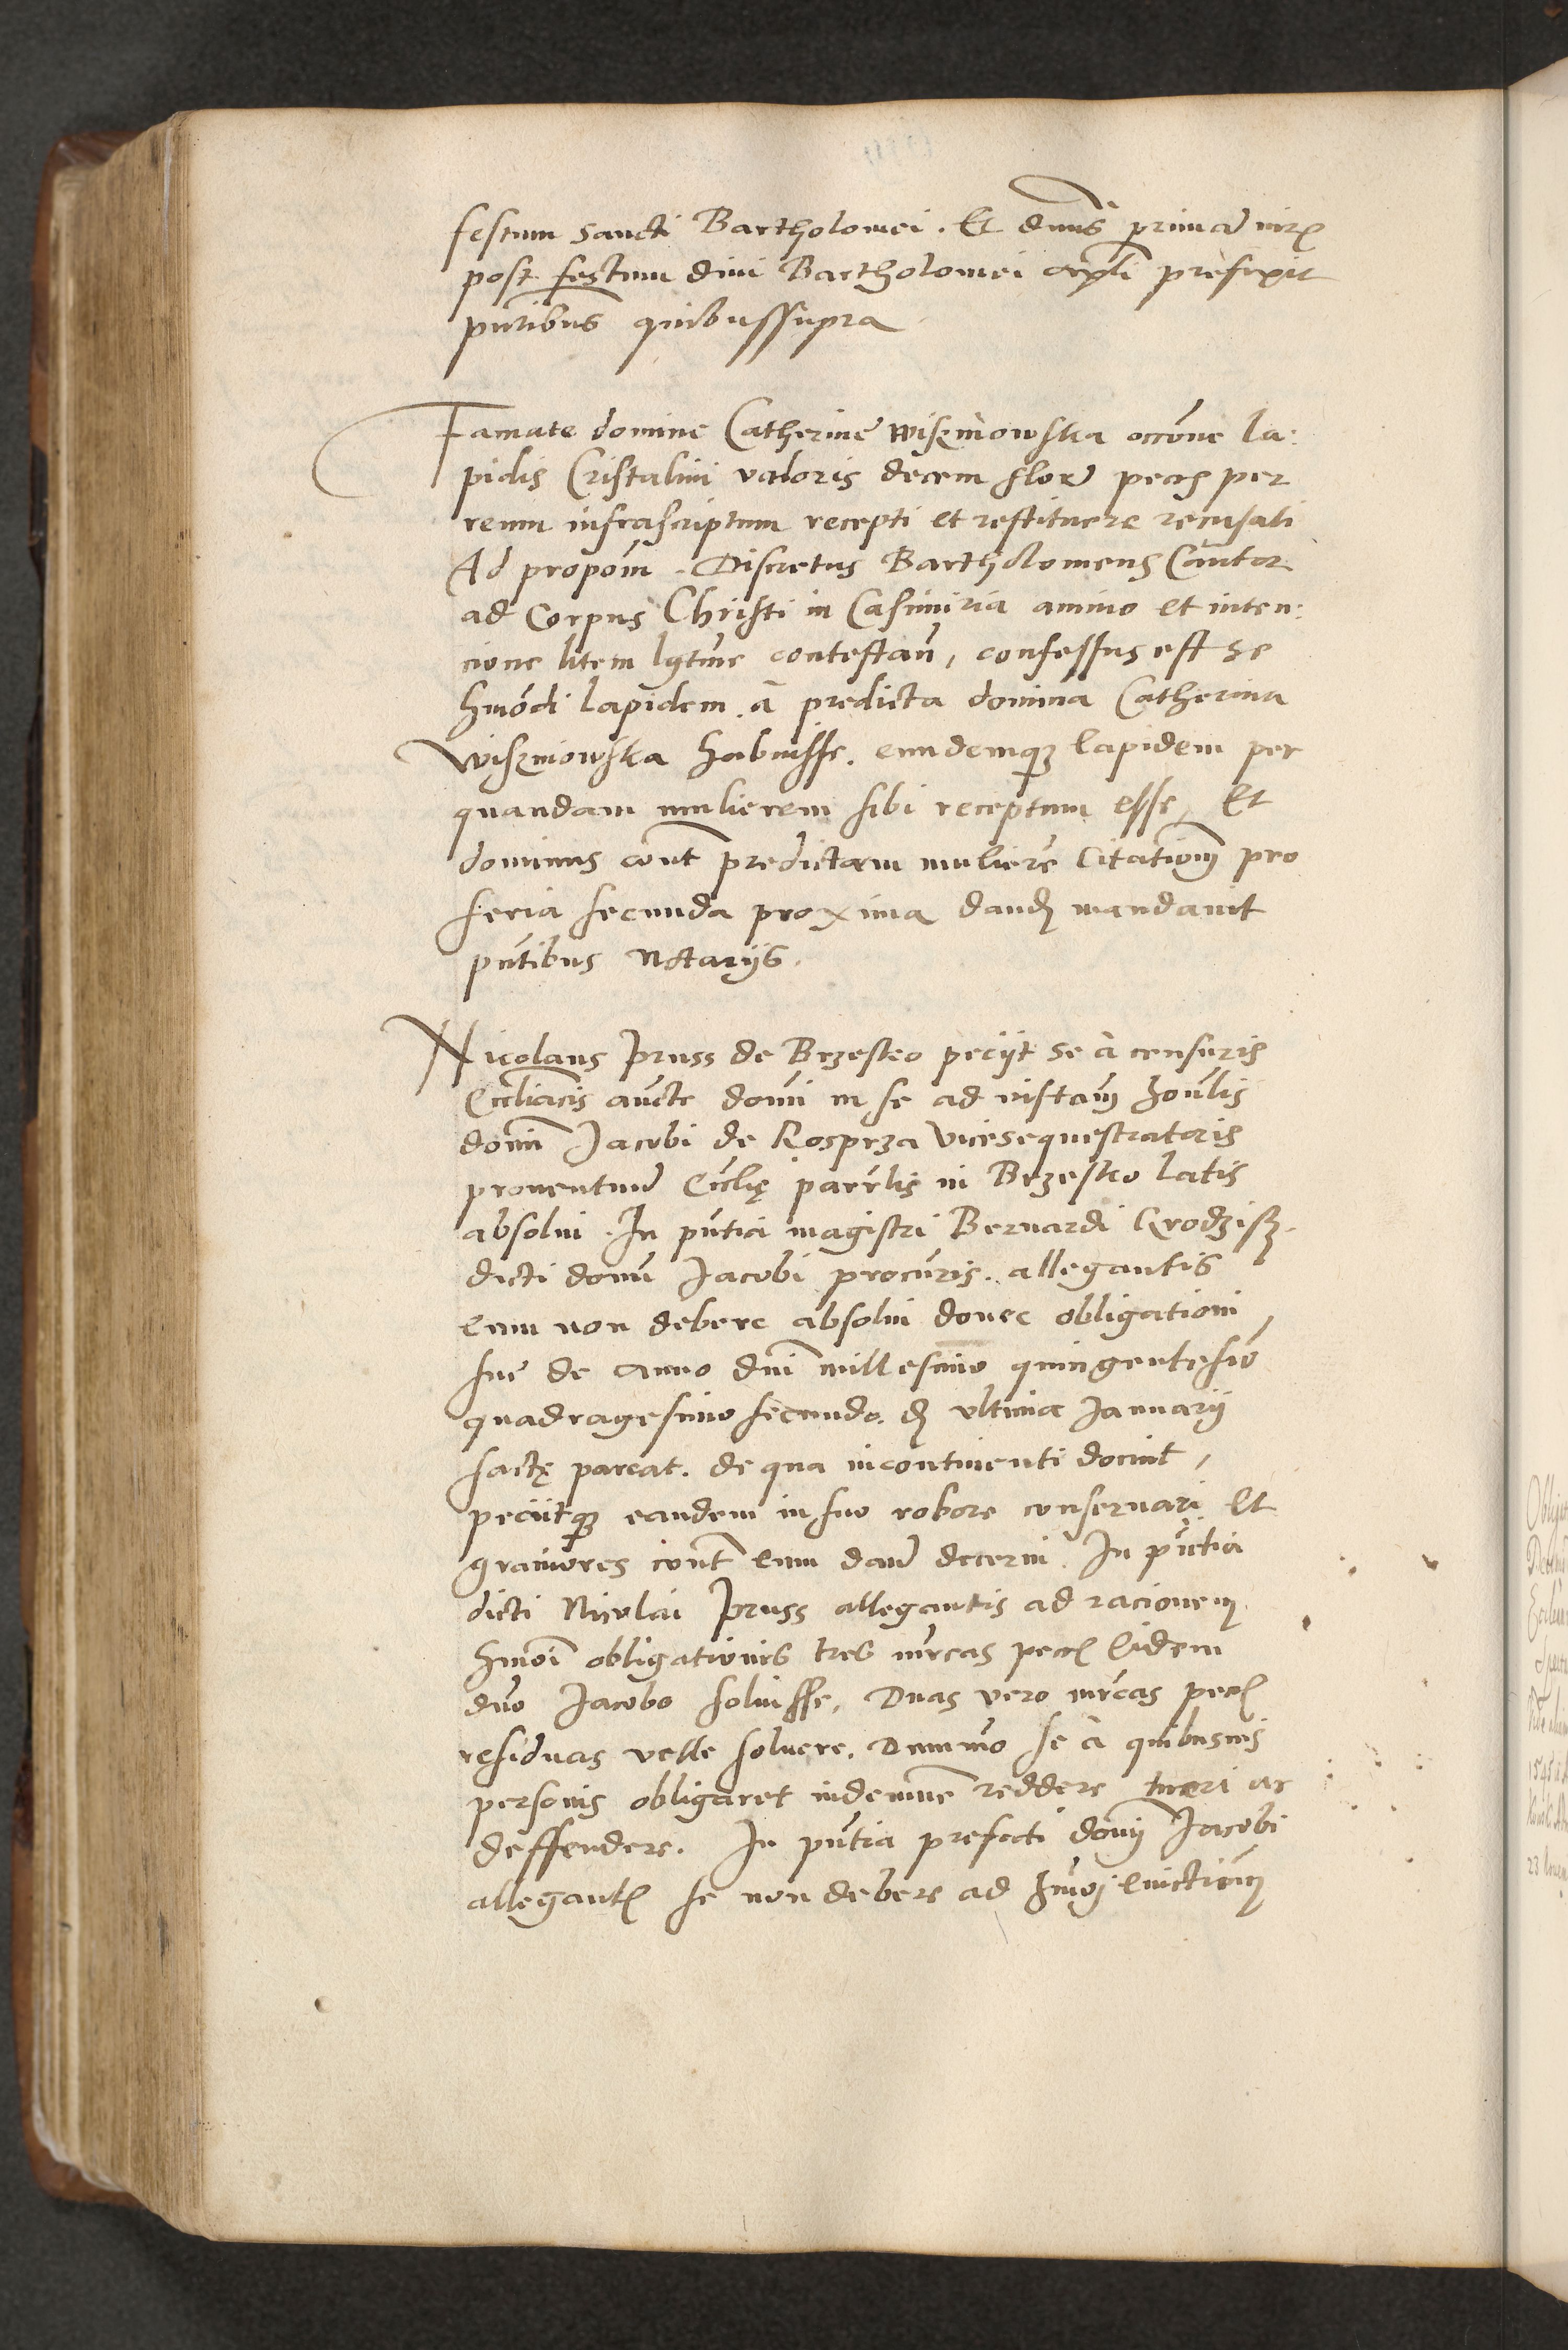 festum Sancti Bartholomei. Et dnus primam iurs
post festum divi Bartholomei apli prefixit
pntibus quibussupra
Famate domine Catherine Wiszniowska occõne la:
pidis Cristalini valoris decem flor pecs per
reum infrascriptum recepti et restituere recusati
Ad propom. Discretus Bartholomeus Cantor
ad Corpus Christi in Casimiria animo et inten:
cione litem lgtime contestan, confessus est se
hmodi lapidem a predicta domina Catherina
Wiszniowska habuisse. eundemq3 lapidem per
quandam mulierem sibi receptum esse, Et
dominus cont predictam muliere Citationem pro
feria secunda proxima dand mandavit
pntibus Notarijs.
Nicolaus Pruss de Brzesko peciit se à censuris
Eccliacis aucte domi in se ad instam honlis
domi Jacobi de Rosprza Vicesequestratoris
proventuum Ecclię parrlis in Brzesko latis
absolvi. In pntia magistri Bernardi Grodzisz
dicti domi Jacobi procuris. allegantis
eum non debere absolvi donec obligationi
sue de anno dni millesimo quingentesio
quadragesimo secundo. d ultima Januarij
factę pareat. de qua incontinenti docuit,
peciitq3 eandem in suo robore conservari Et
graviores cont eum dare decerni. In pntia
dicti Nicolai Pruss allegantis ad racionem
hmoi obligationis tres mrcas pecs eidem
dno Jacobo solvisse, Duas vero mrcas pecs
residuas velle solvere. Dummo se à quibusvis
personis obligaret indemne reddere tueri ac
deffendere. In pntia prefati domi Jacobi
allegants se non debere ad hmoi evictionem